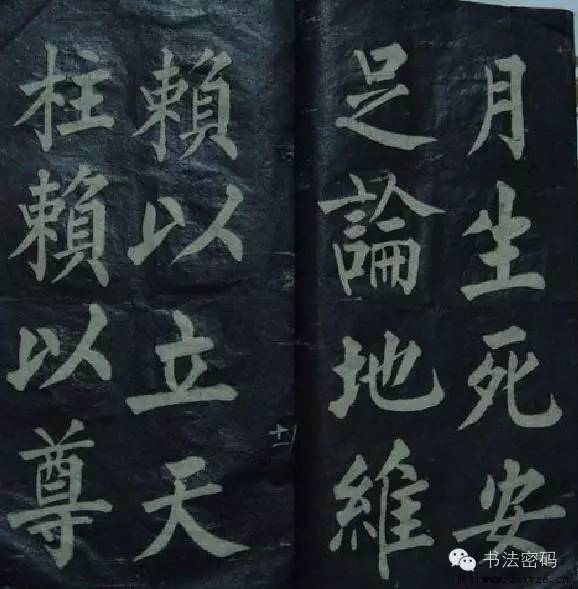 月生死安
足論地維
賴以立天
柱賴以尊
十一
书法密码